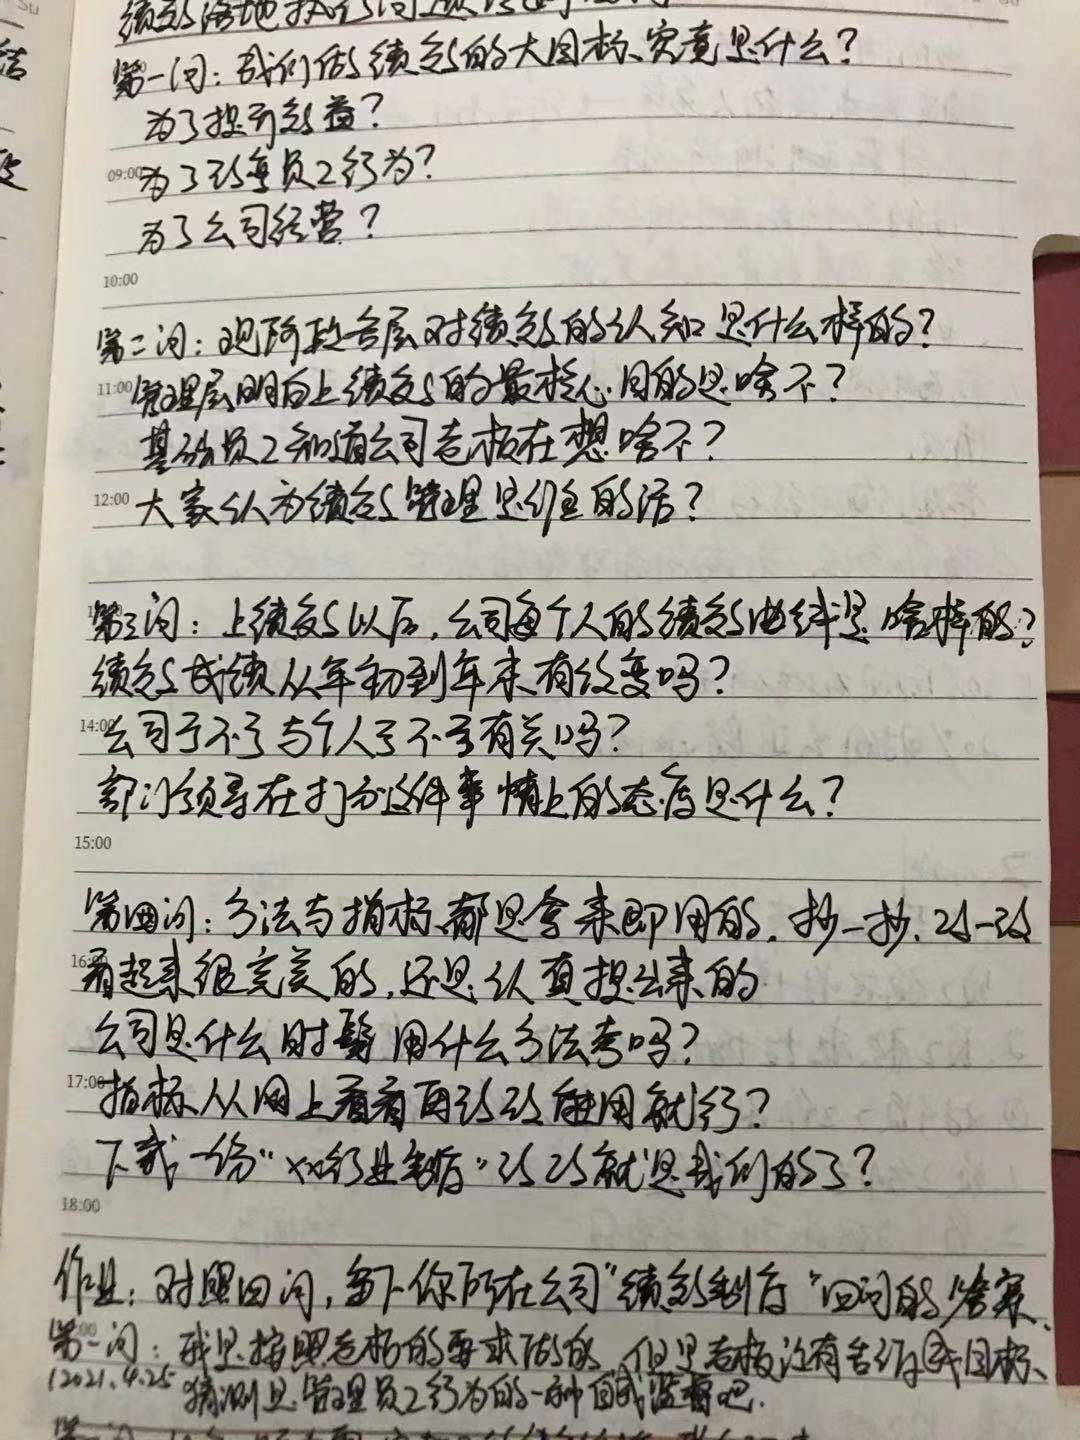 绩效落地执行问题
第一问：我们做绩效的大目标、究竟是什么？
为了提升效益？
09:00 为了改变员工行为？
为了公司经营？
10:00
第二问：现阶段各层对绩效的认知是什么样的？
11:00 管理层明白上绩效的最核心目的是啥不？
基础员工知道公司老板在想啥不？
12:00 大家认为绩效管理是谁的活？
第三问：上绩效以后，公司每个人的绩效曲线是啥样的？
绩效成绩从年初到年末有改变吗？
14:00 公司亏不亏与个人亏不亏有关吗？
部门领导在打分这件事情上的态度是什么？
15:00
第四问：方法与指标、都是拿来即用的，抄一抄、改一改
16:00 看起来很完美的，还是认真想出来的
公司是什么时髦用什么方法考吗？
17:00 指标从网上看看再改改能用就行？
下载一份“xx行业制度”改改就是我们的了？
18:00
作业：对照四问，留下你所在公司“绩效制度”四问的答案、
第一问：我是按照老板的要求做的，但是老板没有告诉我目标、
2021.4.25 猜测是管理员工行为的一种自我监督吧.